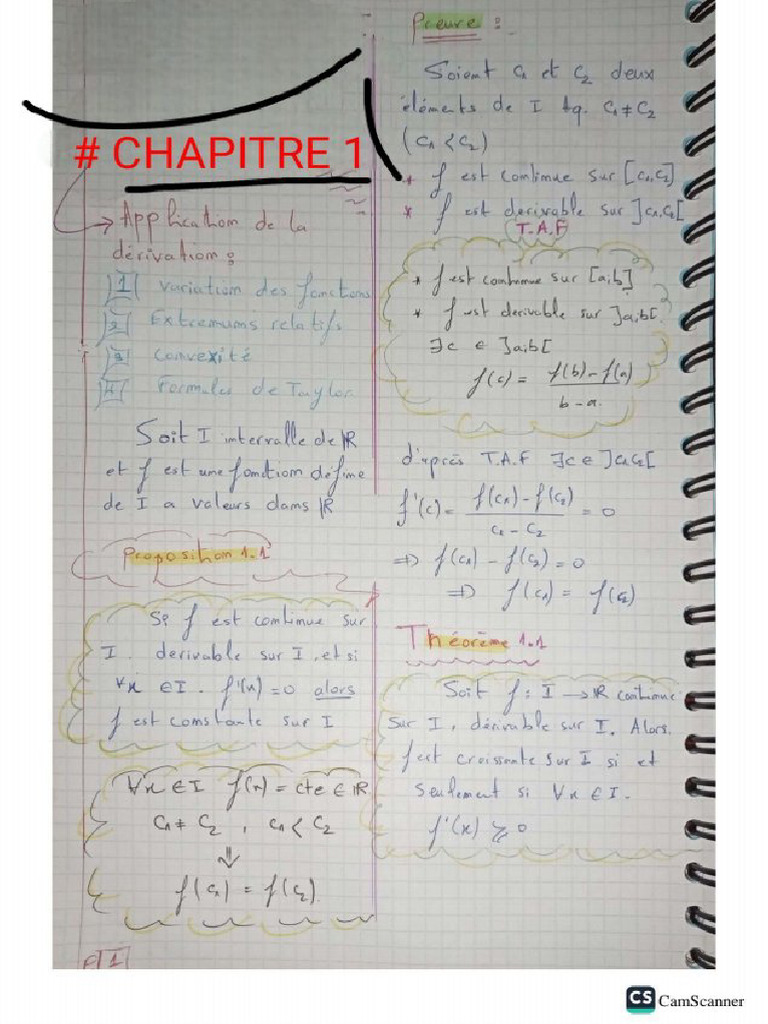 # CHAPITRE 1
Application de la
dérivation :
1 Variation des fonctions
2 Extremums relatifs
3 Convexité
4 Formules de Taylor
Soit I intervalle de ℝ
et f est une fonction définie
de I a valeurs dans ℝ
Proposition 1.1
Si f est continue sur
I. derivable sur I, et si
∀x ∈ I. f'(x) = 0 alors
f est constante sur I
∀x ∈ I f(x) = cte ∈ ℝ
C₁ ≠ C₂ , C₁ < C₂
⇓
f(C₁) = f(C₂).
Preuve :
Soient C₁ et C₂ deux
éléments de I tq. C₁ ≠ C₂
(C₁ < C₂)
* f est continue sur [C₁,C₂]
* f est derivable sur ]C₁,C₂[
T.A.F
* f est continue sur [a;b]
* f est derivable sur ]a,b[.
∃c ∈ ]a;b[
f(c) = f(b) - f(a) / b - a.
d'après T.A.F ∃c ∈ ]C₁ C₂[
f'(c) = f(C₁) - f(C₂) / C₁ - C₂ = 0
⇒ f(C₁) - f(C₂) = 0
⇒ f(C₁) = f(C₂)
Théorème 1.1
Soit f : I → ℝ continue
sur I, dérivable sur I. Alors.
f est croissante sur I si et
seulement si ∀x ∈ I.
f'(x) ⩾ 0
CS CamScanner